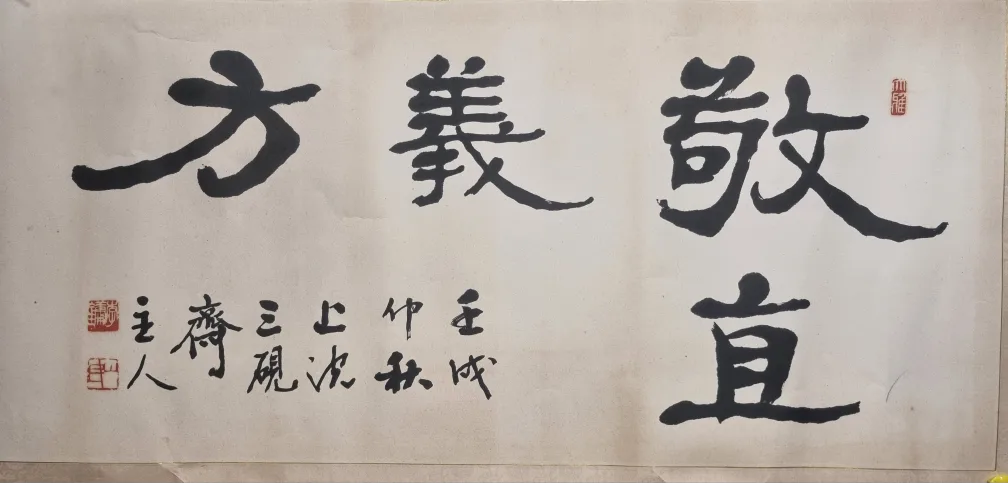 大雅
敬直
義
方
壬戌
仲秋
上浣
三硯
齋
主人